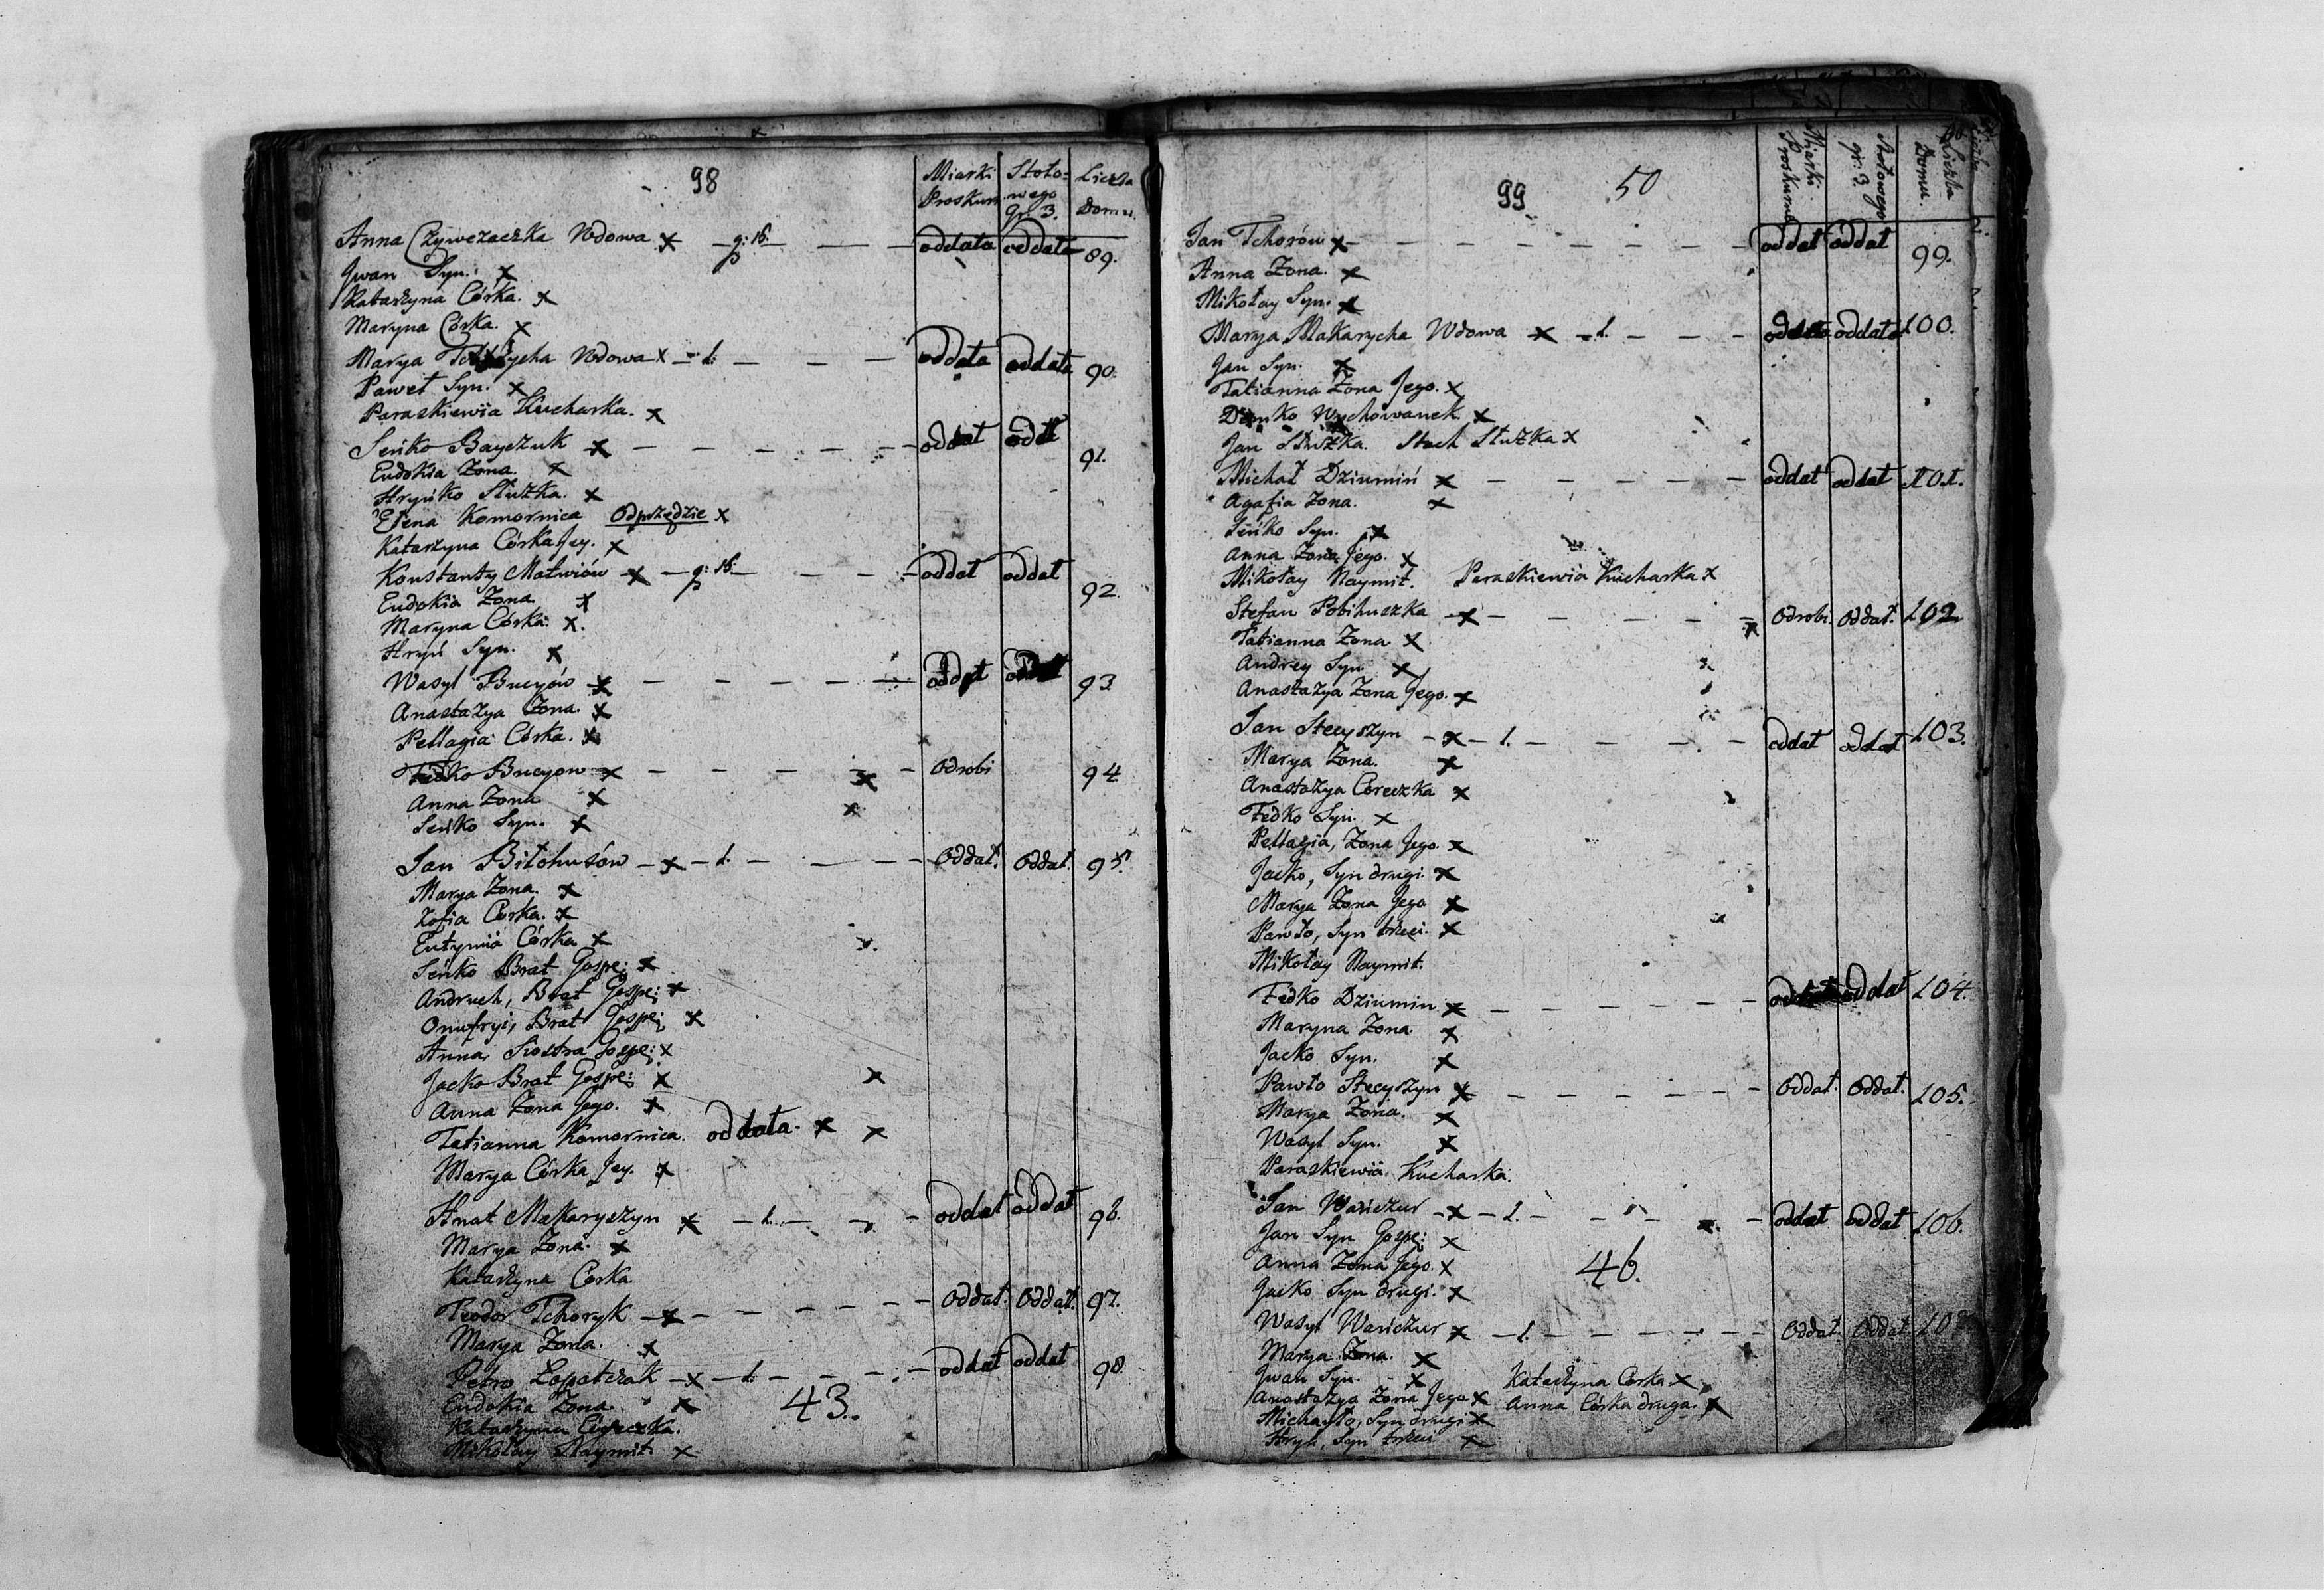 98
Miarki Stoło= Liczba
Proskurn. wego Domu.
Gr. 3.
Anna Czywczaczka Wdowa x — g: 15. — — — oddała oddała 89.
Jwan Syn. x
Katarzyna Córka. x
Maryna Córka. x
Marya Wdowa x — 1. — — — oddała oddała 90.
Paweł Syn. x
Paraskiewia Kucharka. x
Seńko Bayczuk x — — — — — — oddał oddał 91.
Eudokia Zona. x
Hryńko Służka. x
Elena Komornica Odprzędzie x
Katarzyna Córka Jey. x
Konstanty Matwiów x — g: 15. — — — oddał oddał 92.
Eudokia Zona x
Maryna Córka. x.
Hryń Syn. x
Wasyl Bucyów x — — — — — oddał oddał 93
Anastazya Zona. x
Pellagia Córka. x
Fedko Bucyow x — — — — x — Odrobi 94
Anna Zona x x
Seńko Syn. x
Jan Biłohusów — x — 1. — — — — Oddał. Oddał. 95.
Marya Zona. x
Zofia Corka. x
Eutymia Córka x x.
Seńko Brat Gospo: x
Andruch, Brat Gospo: x
Onufryi, Brat Gospo: x
Anna, Siostra Gospo: x
Jacko Brat Gospo: x x
Anna Zona Jego. x
Tatianna Komornica. oddała. x x
Marya Córka Jey. x
Hnat Makaryszyn x — 1. — — — oddał oddał 96.
Marya Zona. x
Katarzyna Corka
Teodor Tchoryk — x — — — — — — Oddał. Oddał. 97.
Marya Zona. x
Petro Łopatczak — x — 1. — — — — oddał oddał 98.
Eudokia Zona. x 43.
Katarzyna Coreczka.
Mikołay Naymit. x
99 50
Miarki Proskurne
Stołowego gr: 3.
Liczba Domu.
Jan Tchorów x — — — — — — — oddał oddał 99.
Anna Zona. x
Mikołay Syn. x
Marya Makarycha Wdowa x — 1. — — — oddała oddała 100.
Jan Syn. x
Tatianna Zona Jego. x
Demko Wychowanek x
Jan Służka. Stach Służka x
Michał Dziumiń x — — — — — — oddał oddał 101.
Agafia Zona. x
Seńko Syn. x
Anna Zona Jego. x
Mikołay Naymit. Paraskiewia Kucharka x
Stefan Pobihuszka — x — — — — — Odrobi. Oddał. 102
Tatianna Zona x x
Andrey Syn x
Anastazya Zona Jego. x
Jan Stecyszyn — x — 1. — — — — oddał oddał 103.
Marya Zona. x
Anastazya Coreczka x
Fedko Syn. x
Pellagia, Zona Jego. x
Jacko, Syn drugi. x
Marya Zona Jego x
Pawło, Syn trzeci. x
Mikołay Naymit.
Fedko Dziumin x — — — — — — oddał oddał 104.
Maryna Zona x
Jacko Syn. x
Pawło Stecyszyn x — — — — — — Oddał. Oddał. 105.
Marya Zona. x
Wasyl Syn. x
Paraskiewia Kucharka.
Jan Wańczur — x — 1. — — — — oddał oddał 106.
Jan Syn Gospo: x
Anna Zona Jego. x 46.
Jacko Syn drugi. x
Wasyl Wańczur x — 1. — — — — — — Oddał. Oddał 107
Marya Zona. x
Jwan Syn. x Katarzyna Corka x
Anastazya Zona Jego x Anna Córka druga. x
Michayło, Syn drugi x
Hryń, Syn trzeci x